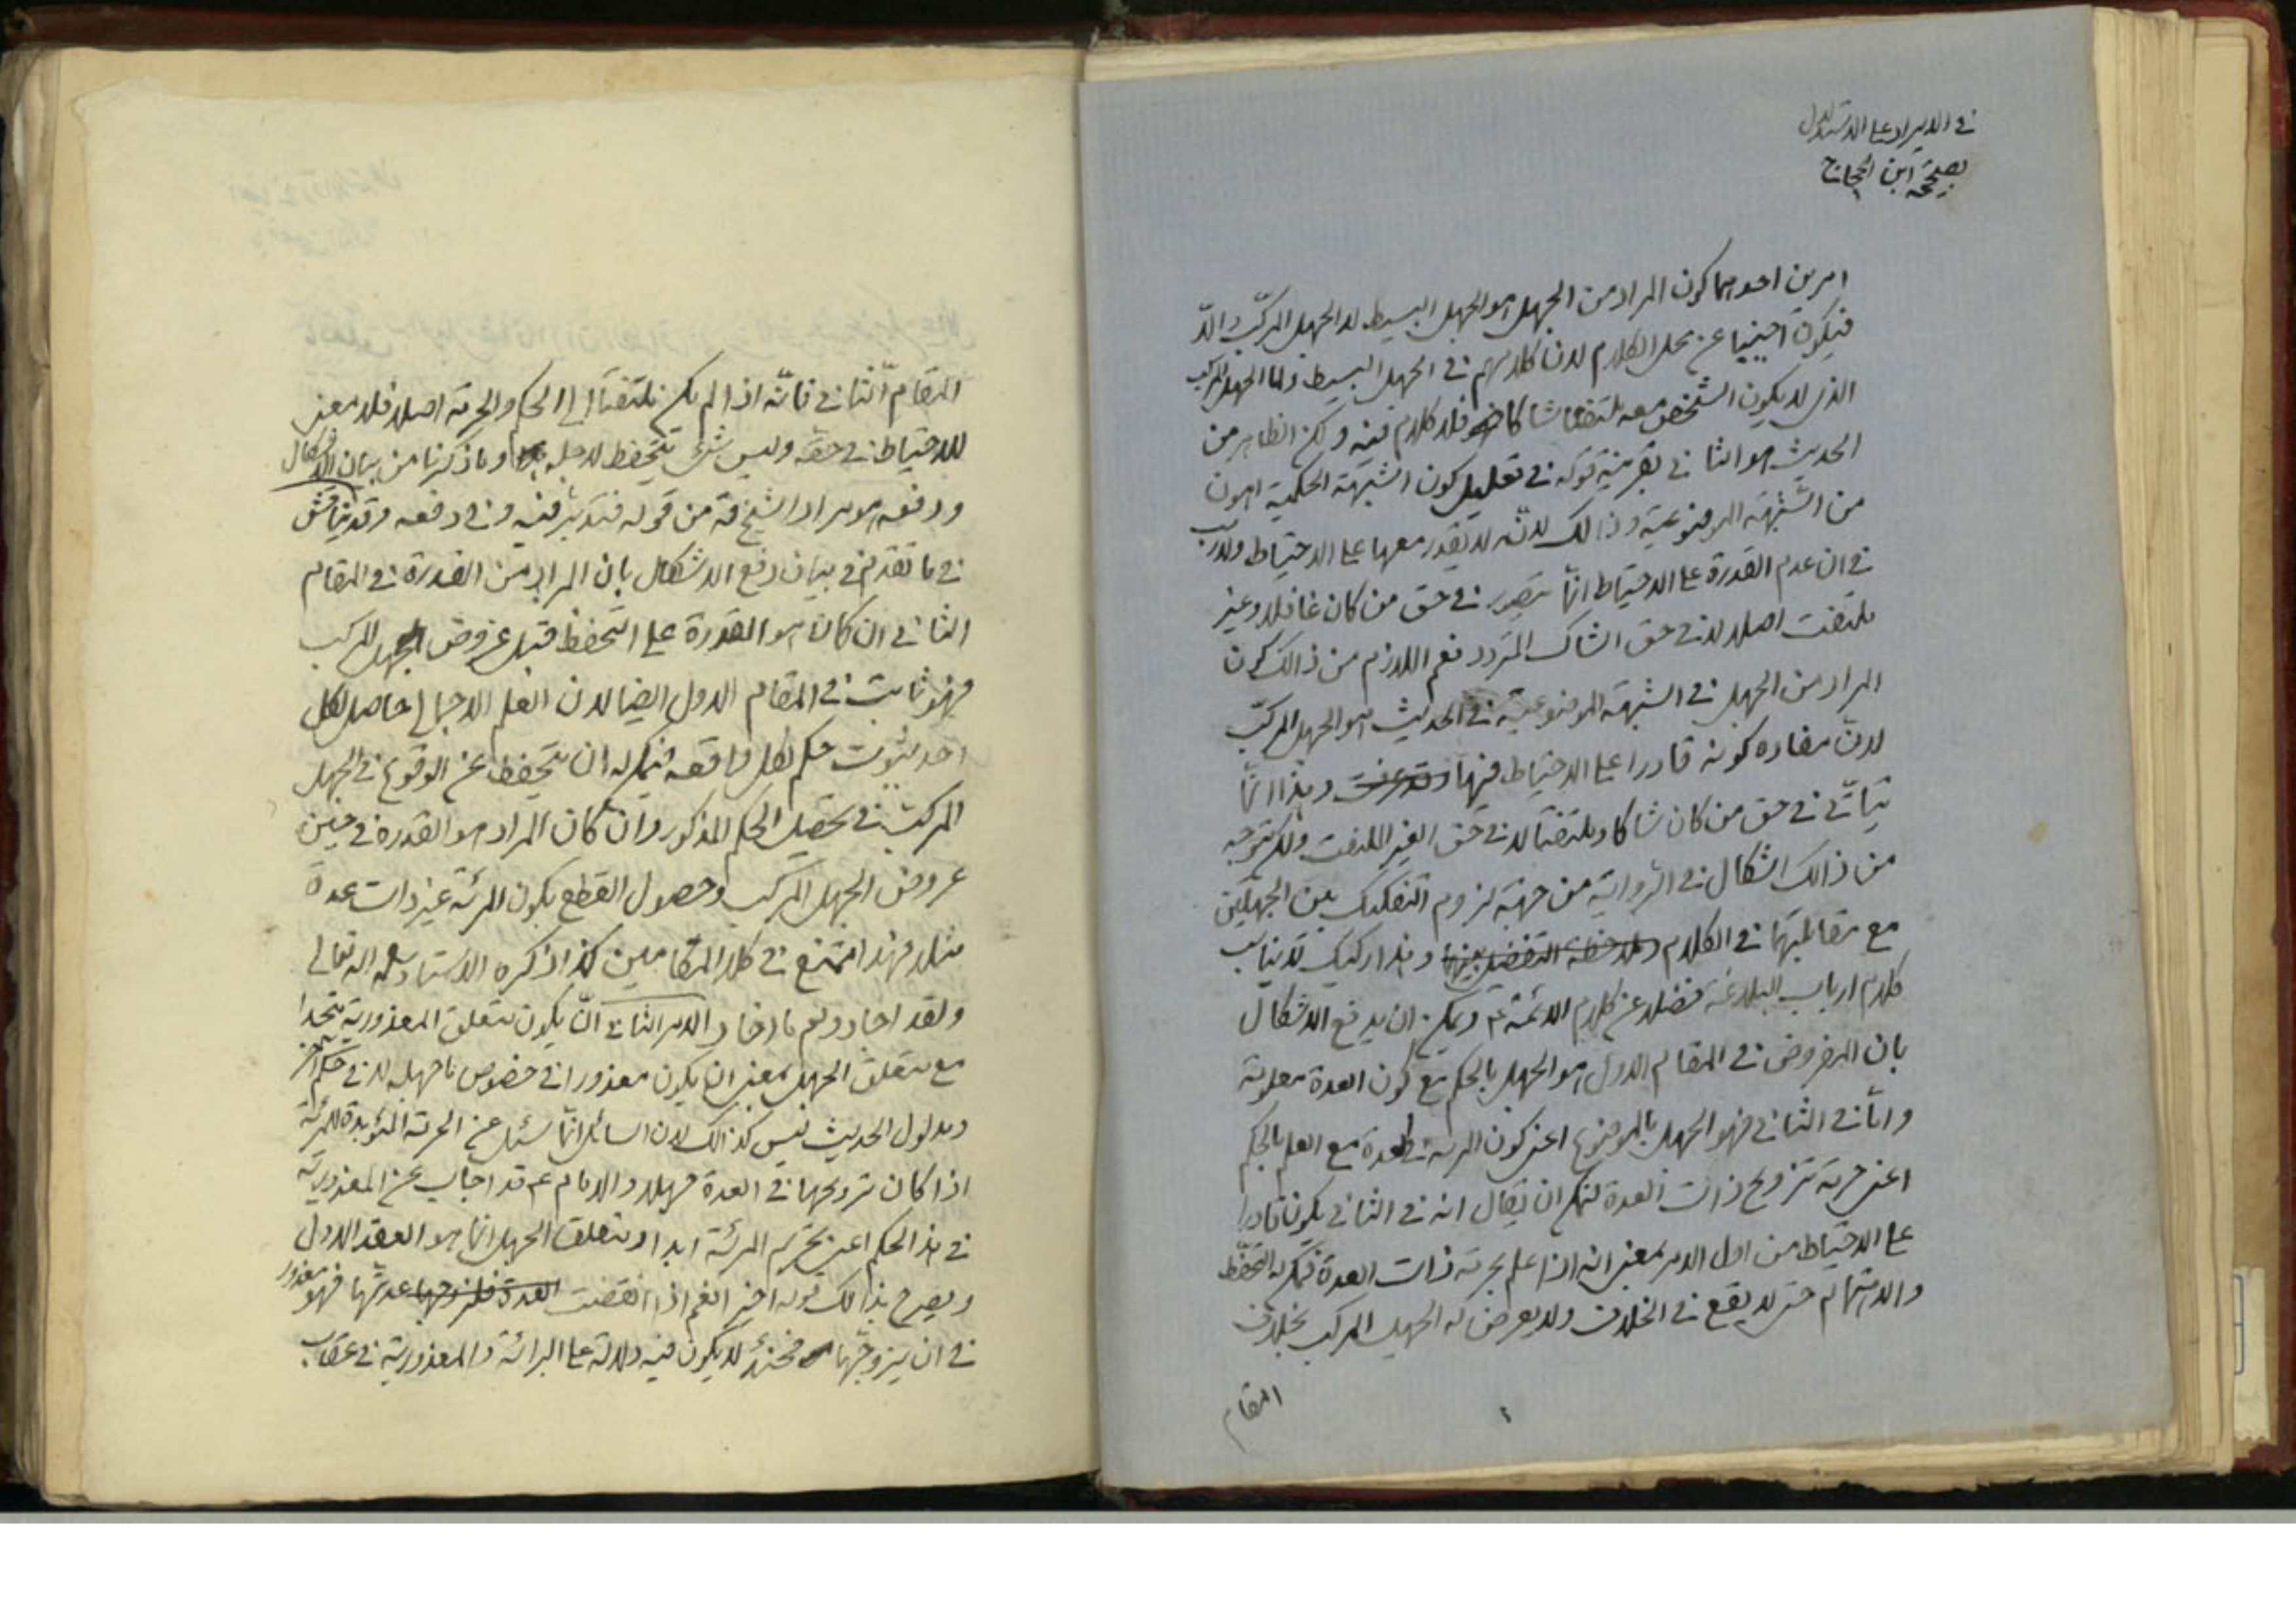 في الايراد على الاستدلال
بصحيحة ابن الحجاج
امرين احدهما كون المراد من الجهل هو الجهل البسيط لا الجهل المركب والا
فيكون اجنبيا عن محل الكلام لان كلامهم في الجهل البسيط واما الجهل المركب
الذي لا يكون الشخص معه ملتفتا شاكا فلا كلام فيه ولكن الظاهر من
الحديث هو الثاني بقرينة قوله في تعليل كون الشبهة الحكمية اهون
من الشبهة الموضوعية وذالك لانه لا يقدر معها على الاحتياط ولا ريب
في ان عدم القدرة على الاحتياط انما يتصور في حق من كان غافلا وغير
ملتفت اصلا لا في حق الشاك المتردد نعم اللازم من ذالك كون
المراد من الجهل في الشبهة الموضوعية في الحديث هو الجهل المركب
لان مفاده كونه قادرا على الاحتياط فيها وقد عرفت وهذا انما
يتأتى في حق من كان شاكا وملتفتا لا في حق الغير الملتفت ولكن يتوجه
من ذالك اشكال في الرواية من جهة لزوم التفكيك بين الجهلين
مع مقابلتهما في الكلام وملاحظة التفضيل بينهما وهذا ركيك لا يناسب
كلام ارباب البلاغة فضلا عن كلام الائمة ع ويمكن ان يدفع الاشكال
بان المفروض في المقام الاول هو الجهل بالحكم مع كون العدة معلومة
واما في الثاني فهو الجهل بالموضوع اعني كون المرئة في العدة مع العلم بالحكم
اعني حرمة تزويج ذات العدة لتمكن ان يقال انه في الثاني يكون قادرا
على الاحتياط من اول الامر بمعنى انه اذا علم بحرمة ذات العدة فيمكن له التحفظ
والاهتمام حتى لا يقع في الخلاف ولا يعرض له الجهل المركب بخلاف
المقام
المقام الثاني فانه اذا لم يكن ملتفتا الى الحكم والحرمة اصلا فلا معنى
للاحتياط في حقه وليس شيء يتحفظ لاجله وما ذكرنا من بيان الاشكال
ودفعه هو مراد الشيخ قه من قوله فتدبر فيه وفي دفعه وقد يناقش
في ما تقدم في بيان دفع الاشكال بان المراد من القدرة في المقام
الثاني ان كان هو القدرة على التحفظ قبل عروض الجهل المركب
فهو ثابت في المقام الاول ايضا لان العلم الاجمالي حاصل لكل
احد بثبوت حكم لكل واقعه فيمكن له ان يتحفظ عن الوقوع في الجهل
المركب في تحصيل الحكم المذكور وان كان المراد هو القدرة في حين
عروض الجهل المركب وحصول القطع بكون المرئة غير ذات عدة
مثلا فهذا ممتنع في كلا المقامين كذا ذكره الاستاد سلمه اله تعالى
ولقد اجاد ولم ما افاد الامر الثاني ان يكون متعلق المعذورية متحدا
مع متعلق الجهل بمعنى ان يكون معذورا في خصوص ما جهله لا في حكم اخر
ومدلول الحديث ليس كذالك لان السائل انما سئل عن الحرمة المؤبدة للمرئة
اذا كان تزويجها في العدة جهلا والامام ع قد اجاب عن المعذورية
في هذا الحكم اعني تحريم المرئة ابدا ومتعلق الجهل انما هو العقد الاول
ويصرح بذالك قوله اخيرا نعم اذا انقضت العدة فله تزوجها عدتها فهو معذور
في ان يتزوجها فحينئذ لا يكون فيه دلالة على البرائة والمعذورية في عقاب